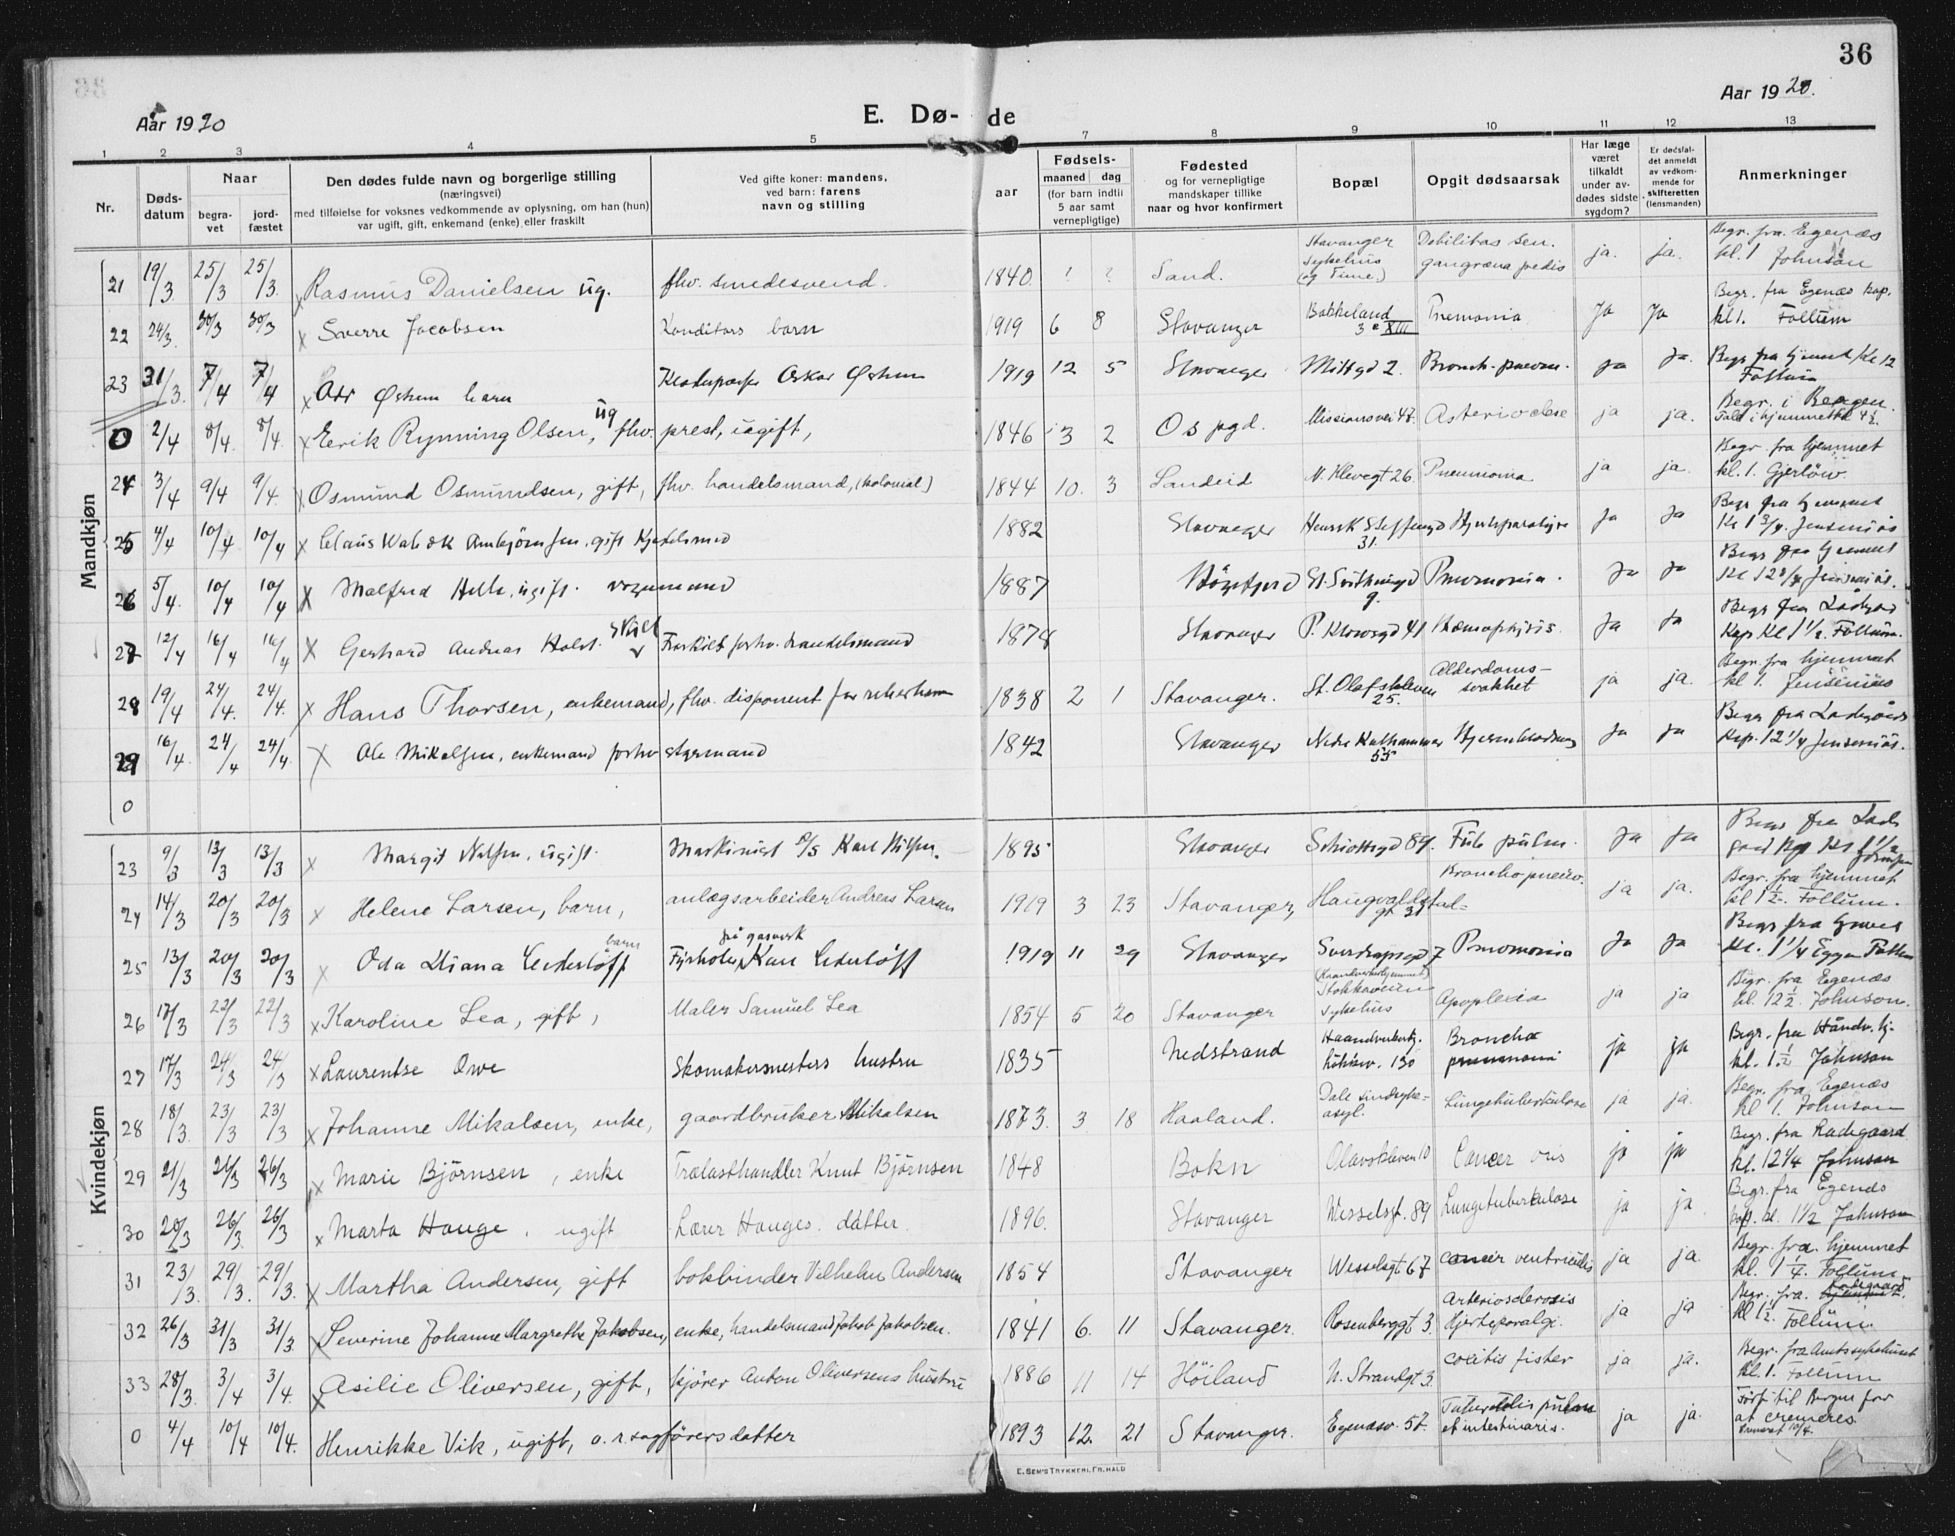 36
Aar 1920
E. Dø-de
Aar 1920.
1 2 3 4 5 7 8 9 10 11 12 13
Nr.
Døds-datum
Naar
begra-vet
jord-fæstet
Den dødes fulde navn og borgerlige stilling
(næringsvei)
med tilføielse for voksnes vedkommende av oplysning, om han (hun)
var ugift, gift, enkemand (enke) eller fraskilt
Ved gifte koner: mandens,
ved barn: farens
navn og stilling
aar
Fødsels-
maaned dag
(for barn indtil
5 aar samt
vernepligtige)
Fødested
og for vernepligtige
mandskaper tillike
naar og hvor konfirmert
Bopæl
Opgit dødsaarsak
Har læge
været
tilkaldt
under av-
dødes sidste
sygdom?
Er dødsfal-
det anmeldt
av vedkom-
mende for
skifteretten
(lensmanden)
Anmerkninger
Mandkjøn
21 19/3 25/3 25/3 Rasmus Danielsen ug. fhv. smedesvend. 1840. ? ? Sand. Stavanger Sykehus (og Time.) Debilitas sen. gangræna pedis ja. ja. Begr. fra Egenæs kl. 1 Johnson
22 24/3 30/3 30/3 Sverre Jacobsen Konditors barn 1919 6 8 Stavanger Bakkeland 3 XIII Pnemonia Ja Ja Begr. fra Egenæs kap. kl 1. Follum
23 31/3. 7/4 7/4 Østrem barn Oskar Østrem 1919 12 5 Stavanger 2. Bronch-pneum. ja Ja. Begr fra hjemmet Kl 12 Follum
0 2/4 8/4. 8/4. Eerik Rynning Olsen, ug fhv. prest, ugift, 1846 3 2 Os pgd. Missionsvei 47. ja ja. Begr. i Bergen.
24 3/4 9/4 9/4. Osmund Osmundsen, gift, fhv. handelsmand, (kolonial) 1844 10. 3 Sandeid N. Klevegt 26 Pneumonia ja ja. Begr fra hjemmet kl. 1. Gjerløw.
25 4/4 10/4. 10/4 Claus gift 1882 Stavanger 31. Ja Ja Begr fra hjemmet Kl 1 3/4. Jensenius
26 5/4. 10/4 10/4 Malfred Helle, ugift. vognmand 1887 St. Svithungd 9. Pnemonia. Ja Ja Begr fra hjemmet
27 12/4 16/4 16/4 Gerhard Andreas Holst. skilt Fraskilt forhv. handelsmand Stavanger P. Klowsgd 41 Hæmophysis. Ja Ja Begr fra Ladegard Kap Kl 1 1/2. Follum.
28 19/4 24/4. 24/4. Hans Thorsen, enkemand, fhv. disponent 1838 2 1 Stavanger. St. Olafskleven 25. Alderdoms-svakhet ja ja. Begr. fra hjemmet kl 1. Jensenius
29 16/4. 24/4 24/4. Ole Mikalsen, enkemand forhv styrmand 1842 Stavanger Nedre 55 Ja Ja Begr fra Ladegaards Kap. 12 1/4 Jensenius.
0
Kvindekjøn
23 9/3 13/3 13/3 Margit Nilsen, ugift. Maskinist Karl Nilsen. 1895 Stavanger Schiøttsgd 89. Tub. pulm. Ja Ja
24 14/3 20/3 20/3 Helene Larsen, barn, anlægsarbeider Andreas Larsen 1919 3 23 Stavanger, Haugvaldstad-gt 31 Broncho pneum. ja ja. Begr. fra hjemmet kl 1 1/2. Follum.
25 13/3 20/3 20/3 Oda Diana Cederløff barn Fyrbøter på gasverk Karl Cederløff 1919 11 29 Stavanger Sverdrupsgd 7 Pnemonia Ja Ja
26 17/3 22/3 22/3 Karoline Lea, gift, Maler Samuel Lea 1854 5 20 Stavanger Stokkaveien Sykehus Apoplexia ja ja Begr. fra Egenæs kl. 12 1/2. Johnson.
27 17/3 24/3 24/3 Laurentse Owe Skomakermesters hustru 1835 Nedstrand Broncho pneumoni ja ja Begr. fra Håndv. hj. kl. 1 1/2 Johnson
28 18/3. 23/3 23/3 Johanne Mikalsen, enke, gaardbruker Mikalsen 1873. 3 18 Haaland. Dale sindsyke-asyl. Lungetuberkulose ja ja. Begr. fra Egenæs kl 1. Johnson
29 21/3 26/3 26/3 Marie Bjørnsen, enke Trælasthandler Knut Bjørnsen 1848 Bokn Olavskleven 10 Cancer ja ja Begr. fra Ladegaard kl. 12 1/4 Johnson
30 20/3 26/3. 26/3 Marta Hauge, ugift Lærer Hauges datter. 1896. Stavanger Wesselsgt. 89 Lungetuberkulose ja ja. Begr. fra Egenæs kap. kl. 1 1/2 Johnson
31 23/3. 29/3. 29/3. Martha Andersen, gift bokbinder Vilhelm Andersen 1854 Stavanger Wesselsgt 67 cancer ventriculis ja ja. Begr. fra. hjemmet kl. 1 1/4. Follum
32 26/3 31/3 31/3. Severine Johanne Margrethe Jakobsen, enke, handelsmand Jakob Jakobsen. 1841 6. 11 Stavanger. Rosenberggt 3. Arteriosclerosis Hjerteparalyse ja ja Begr. fra. Ladegaard kl 1 1/2. Follum.
33 28/3. 3/4 3/4. Asilie Oliversen, gift, kjører Anton Oliversens hustru 1886 11 14 Höiland N. Strandgt 3. colitis ja ja. Begr. fra Amtssykehuset Kl. 1. Follum
0 4/4 10/4 10/4. Henrikke Vik, ugift, o. r. sagførers datter 1893 12. 21 Stavanger. Egenæsv. 57. pulm et intestinaris. ja ja. Ført til Bergen for at cremeres.
E. SEM'S TRYKKERI, FR.HALD